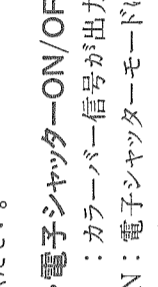 ください。
電子シャッターON/OF
：カラーバー信号が出力
N：電子シャッターモードに